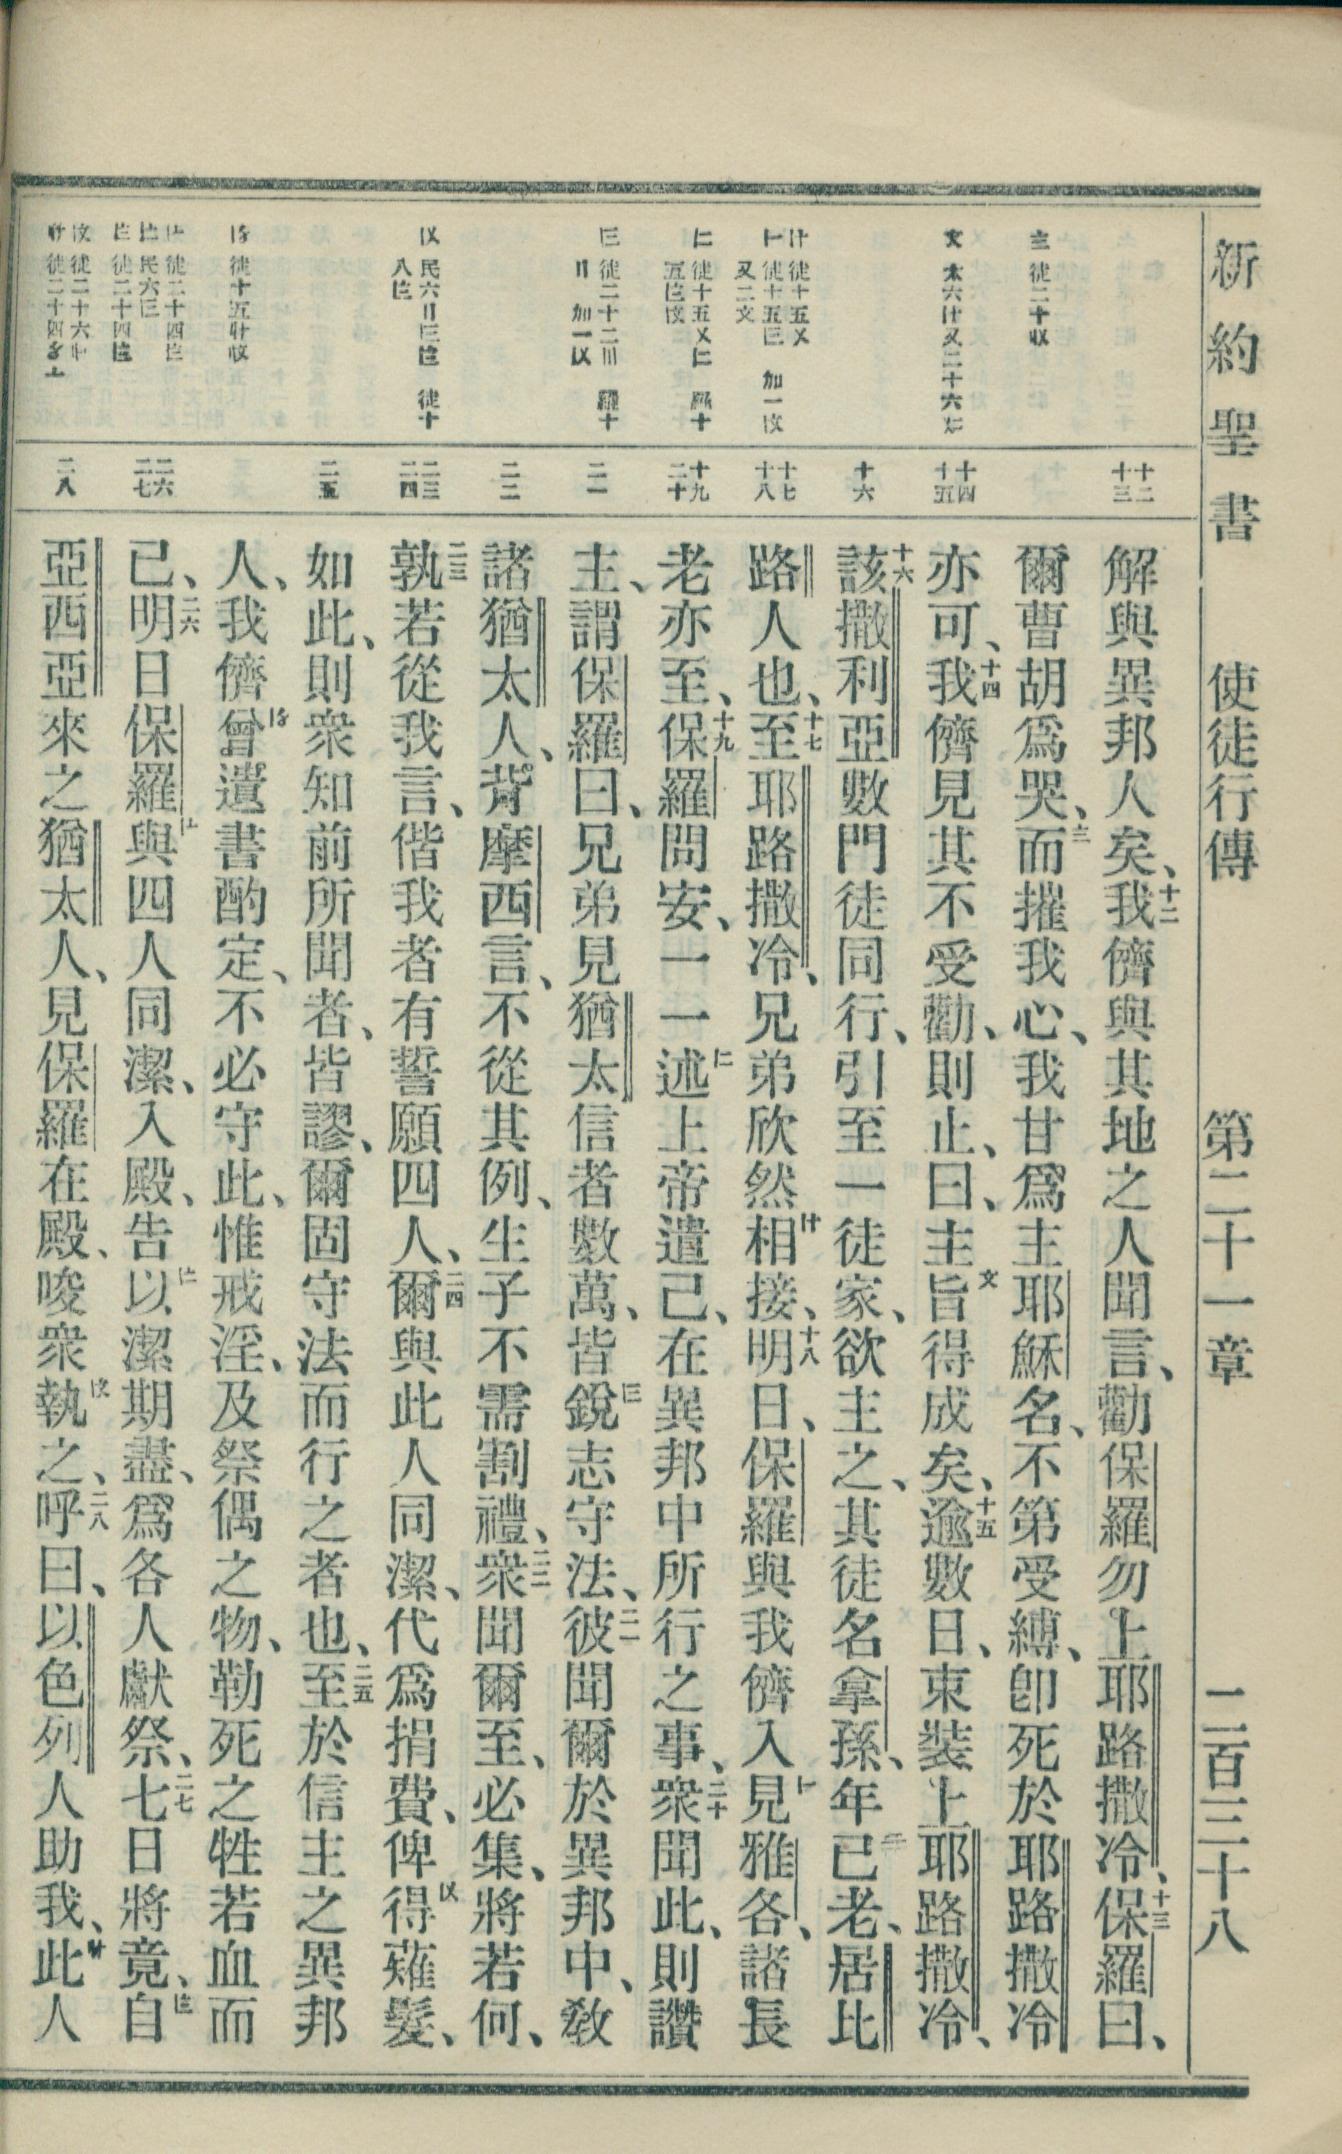 新約聖書 使徒行傳 第二十一章 二百三十八
十二
十三
十四
十五
十六
十七
十八
十九
二十
二一
二二
二三
二四
二五
二六
二七
二八
解與異邦人矣、十二我儕與其地之人聞言、勸保羅勿上耶路撒冷、十三保羅曰、
爾曹胡爲哭、而摧我心、我甘爲主耶穌名、不第受縛、卽死於耶路撒冷
亦可、十四我儕見其不受勸、則止、曰、主旨得成矣、十五逾數日、束裝上耶路撒冷、
十六該撒利亞數門徒同行、引至一徒家、欲主之、其徒名拿孫、年已老、居比
路人也、十七至耶路撒冷、兄弟欣然相接、十八明日、保羅與我儕入見雅各、諸長
老亦至、十九保羅問安、一一述上帝遣己、在異邦中所行之事、二十衆聞此、則讚
主、謂保羅曰、兄弟見猶太信者數萬、皆銳志守法、二一彼聞爾於異邦中、敎
諸猶太人、背摩西言、不從其例、生子不需割禮、二二衆聞爾至、必集、將若何、
二三孰若從我言、偕我者有誓願四人、二四爾與此人同潔、代爲捐費、俾得薙髮、
如此、則衆知前所聞者、皆謬、爾固守法而行之者也、二五至於信主之異邦
人、我儕曾遺書酌定、不必守此、惟戒淫、及祭偶之物、勒死之牲若血而
已、二六明日保羅與四人同潔、入殿、告以潔期盡、爲各人獻祭、二七七日將竟、自
亞西亞來之猶太人、見保羅在殿、唆衆執之、二八呼曰、以色列人助我、此人